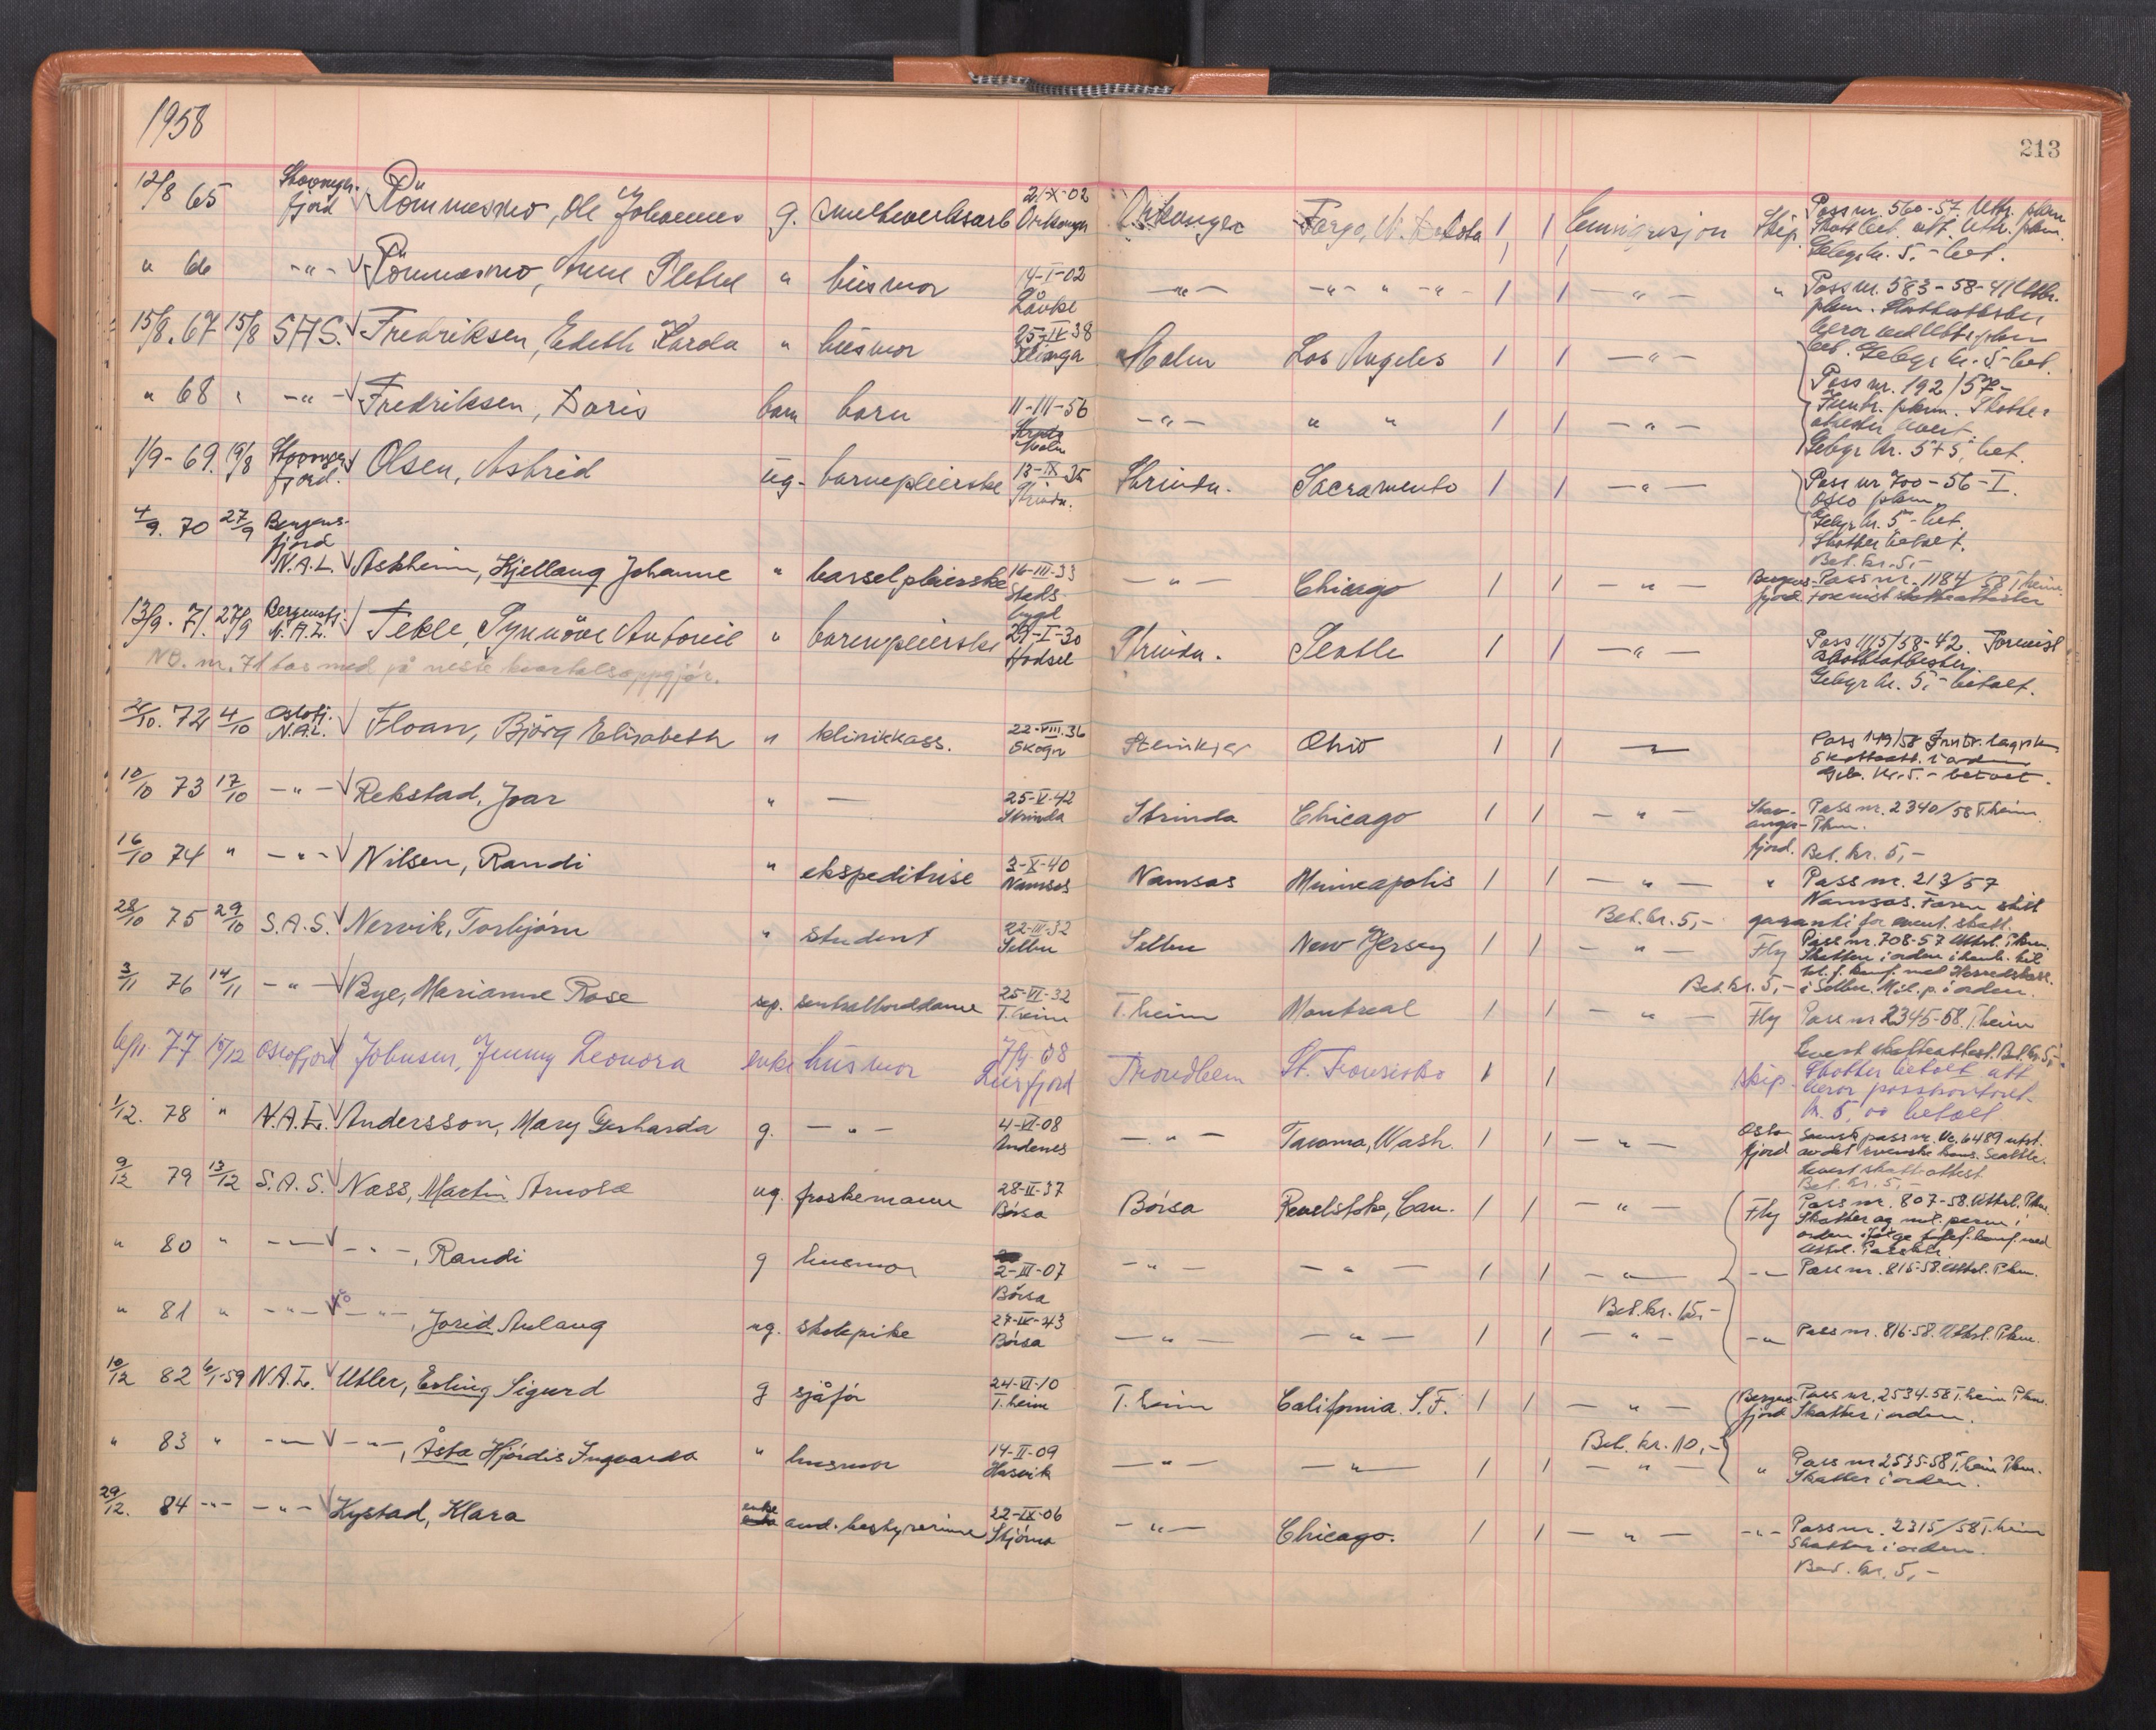 1958
213
12/8 65 Stavanger- fjord Römmesmo, Ole Johannes g. smelteverksarb 21-X-02 Orkanger Orkanger Fargo, N. Dakota 1 1 Emigrasjon Skip. Pass nr. 560-57. Uttr. pkm.
Skatt bet. att. Uttr. pkm.
Gebyr kr. 5,- bet.
" 66 -"- Römmesmo, Anne " husmor 14-I-02 Lånke -"- -"- " -"- 1 1 -"- " Pass nr. 583-58-41 Uttr.
pkm. Skatteattester
beror ved Uttr. pkm
bet. Gebyr kr. 5- bet.
15/8. 67 15/8 SAS. Fredriksen, Edith " husmor 25-IV 38 Klinga Malm Los Angeles 1 1 -"-
Pass nr. 192/57-
" 68 " -"- Fredriksen, Doris barn barn 11-III-56 Malm -"- " " 1 1 -"-
Inntr. pkm. Skatte-
attester levert.
Gebyr kr. 5+5, bet.
1/9- 69. 19/8 Stavanger fjord. Olsen, Astrid ug- barnepleierske 13-IX 35 Strinda. Strinda. Sacramento 1 1 -"- Pass nr 700-56-I.
Oslo pkm.
Gebyr kr. 5,- bet.
Skatter betalt.
4/9. 70 27/9 Bergens- fjord
N.A.L. Askheim, Kjellaug Johanne " barselpleierske 16-III-33 Stads- bygd -"- Chicago 1 1 -"- Bergens- fjord Bet. kr. 5,-
Pass nr. 1184/58 T.heim.
Forevist skatteattester
13/9. 71. 27/9 Bergensfj. N.A.L. Tekle, Synnöve Antonie " barnepleierske 29-I-30 Hadsel Strinda. Seatle 1 1 -"- Pass 1115/58-42. Forevist
skatteattester.
Gebyr kr. 5,- betalt.
NB. nr. 71 tas med på neste kvartalsoppgjør.
2/10. 72 4/10 Oslofj. N.A.L. Floan, Björg Elisabeth " klinikkass. 22-VIII.36 Skogn Steinkjer Ohio 1 1 Pass 149/58 Inntr.
Skatteatt. i orden
Geb. kr. 5.- betalt.
10/10 73 17/10 -"- Rekstad, Ivar " — 25-V-42 Strinda Strinda Chicago 1 1 -"- Stav- anger- fjord. Pass nr. 2340/58 T.heim
Pkm.
Bet. kr. 5,-
16/10 74 " -"- Nilsen, Randi " ekspeditrise 3-X-40 Namsos Namsos Minneapolis 1 1 -"- " Pass nr. 213/57
Namsos. Faren stilt
Bet. kr. 5,- garanti for event. skatt.
28/10 75 29/10 S.A.S. Nervik, Torbjørn " student 22-III-32 Selbu Selbu New Jersey 1 1 -"- Fly Pass nr. 708-57 Uttrl. Pkm.
Skatten i orden i henh. til
tel. f. konf. med Herredskass.
Bet. kr. 5,- i Selbu. Mil. p. i orden.
3/11 76 14/11 -"- Bye, Marianne Rose sep. sentralborddame 25-VI-32 T.heim T.heim Montreal 1 1 -"- Fly Pass nr 2345-58. T.heim
Levert skatteattest. Bet. kr. 5,-
6/11. 77 15/12 Oslofjord Johnsen, Jenny Leonora enke husmor Leirfjord Trondheim St. Fransisko 1 1 skip. Skatter betalt att
beror passkontoret.
kr. 5,00 betalt
1/12. 78 " N.A.L. Andersson, Mary Gerharda g. -"- 4-VI-08 Andenes -"- Tacoma, Wash. 1 1 -"- Oslo fjord Svensk pass nr. 6489 utst.
av det svenske kons. Seattle.
Levert skatteattest
Bet. kr. 5,-
9/12 79 13/12 S.A.S. Næss, Martin Arnold ug. froskemann 28-II-37 Börsa Börsa Revelstoke, Can. 1 1 -"- Fly Pass nr. 807-58. Uttrl. Pkm.
Skatter og mil. perm. i
orden ifølge telef. konf. med
" 80 " -"- -"-, Randi g husmor 2-III-07 Börsa -"- -"- 1 1 -"- -"- Pass nr. 815-58. Uttrl. Pkm.
Bet. kr. 15,-
" 81 " -"- -"-, Jorid Aslaug ug. skolepike 27-IX-43 Börsa -"- -"- 1 1 -"- -"- Pass nr. 816-58. Uttrl. Pkm.
10/12 82 6/1-59 N.A.L. Utler, Erling Sigurd g sjåfør 24-VI-10 T.heim T.heim California. S.F. 1 1 -"- Bergens- fjord Pass nr. 2534-58 T.heim Pkm.
Skatter i orden.
Bet. kr. 10,-
" 83 " -"- -"-, Åsta Hjördis Ingvarda " husmor 14-II-09 Hasvik -"- -"- 1 1 -"- " Pass nr 2535-58 T.heim Pkm.
Skatter i orden.
29/12. 84 -"- -"- Kystad, Klara enke avd. bestyrerinne 22-IX-06 Stjørna -"- Chicago. 1 1 -"- -"- Pass nr. 2315/58 T.heim
Skatter i orden.
Bet. kr. 5,-